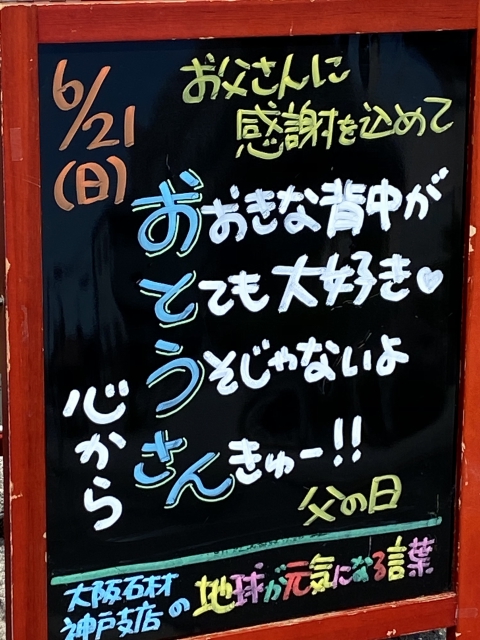 6/21
(日)
お父さんに
感謝を込めて
おおきな背中が
とても大好き♥
うそじゃないよ
心から
さんきゅー!!
父の日
大阪石材
神戸支店の
地球が元気になる言葉